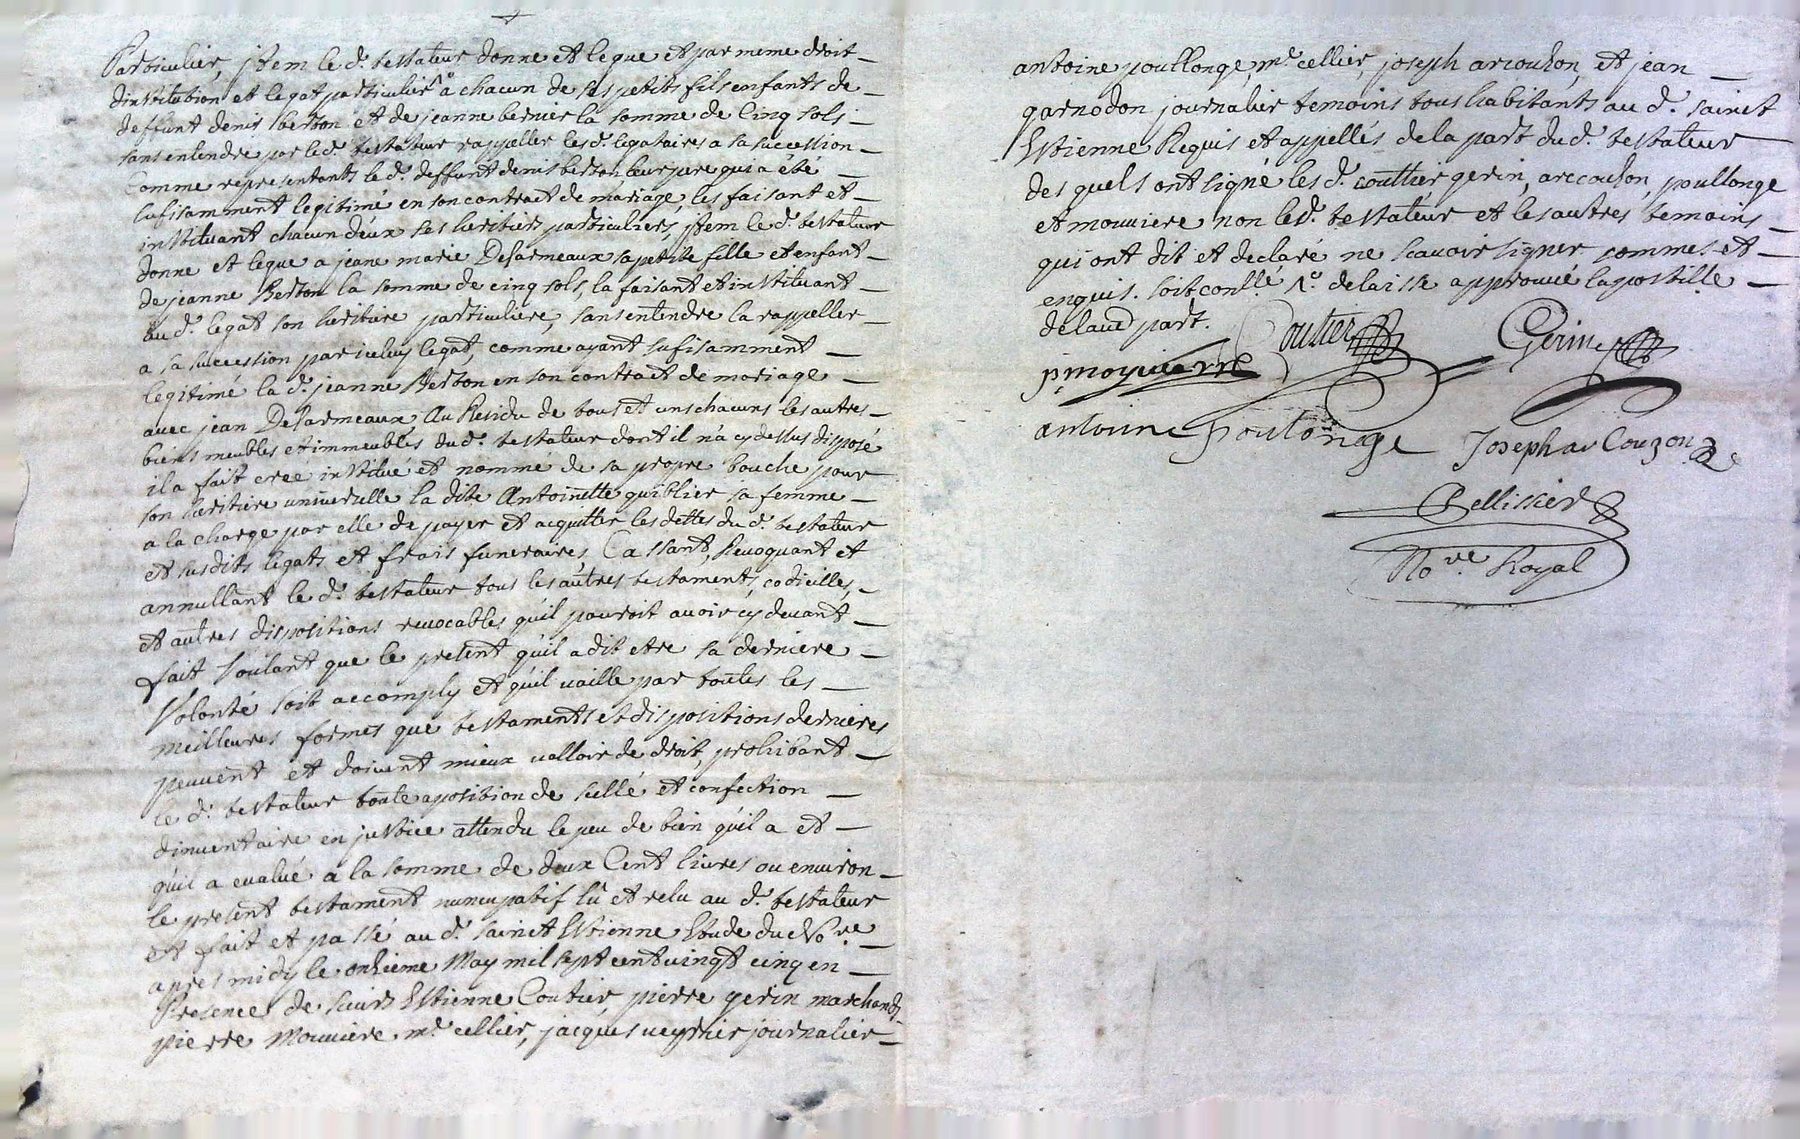 Particulier, jtem le d. testateur donne et legue et par meme droit
dinstitution et legat particulier a chacun de ses petits fils enfants de
deffunt denis berton et de jeanne bernier la somme de Cinq sols
sans entendre par led. testateur rappeller lesd. legataires a sa succession
Comme representants le d. deffunt denis berton leur pere qui a été
sufisamment legitimé en son contract de mariage, les faisant et
instituant chacun deux ses heritiers particuliers, jtem le d. testateur
donne et legue a jeane marie Desarmeaux sa petite fille et enfant
de jeanne Berton la somme de cinq sols, la faisant et instituant
au d. legat son heritiere particuliere, sans entendre la rappeller
a sa succession par iceluy legat, comme ayant sufisamment
legitimé la d. jeanne Berton en son contract de mariage
avec jean Desarmeaux, Au Residu de tous et uns chacuns les autres
biens meubles et immeubles du d. testateur dont il n'a cy dessus disposé
il a fait creé institué et nommé de sa propre bouche pour
son heritiere universelle la dite Antoinette guiblier sa femme
a la charge par elle de payer et acquitter les dettes du d. testateur
et susdits legats et frais funeraires, Cassant, Revoquant et
annullant le d. testateur tous les autres testaments, codicilles,
et autres dispositions revocables qu'il pouroit avoir cy devant
fait Voulant que le present qu'il a dit etre sa derniere
Volonté soit accomply et qu'il vaille par toutes les
meilleures formes que testaments et dispositions dernieres
peuvent et doivent mieux valloir de droit, prohibant
le d. testateur toute aposition de scellé et confection
dinventaire en justice attendu le peu de bien qu'il a et
qu'il a evalué a la somme de deux Cent livres ou environ
le present testament nuncupatif lû et relu au d. testateur
et fait et passé au d. sainct Estienne Etude du No.re
apres midy le onzieme May mil sept cent vingt cinq en
Presence de sieurs Estienne Coutier, pierre gerin marchands
pierre Mouniere m.e cellier, jacques veyrier journalier
antoine poullonge, m.e cellier, joseph arcouzon, et jean
garnodon journalier temoins tous habitants au d. sainct
Estienne Requis et appellés de la part du d. testateur
des quels ont signé les d. couttier gerin, arccouzon, poullonge
et mouniere non led. testateur et les autres temoins
qui ont dit et declaré ne scavoir signer sommes et
enquis. soit conllé delaisse approuvé lapostille
delaud part.
Coutier Gerin
antoine poulonge Joseph ar Couzon
Pellissier
No.re Royal